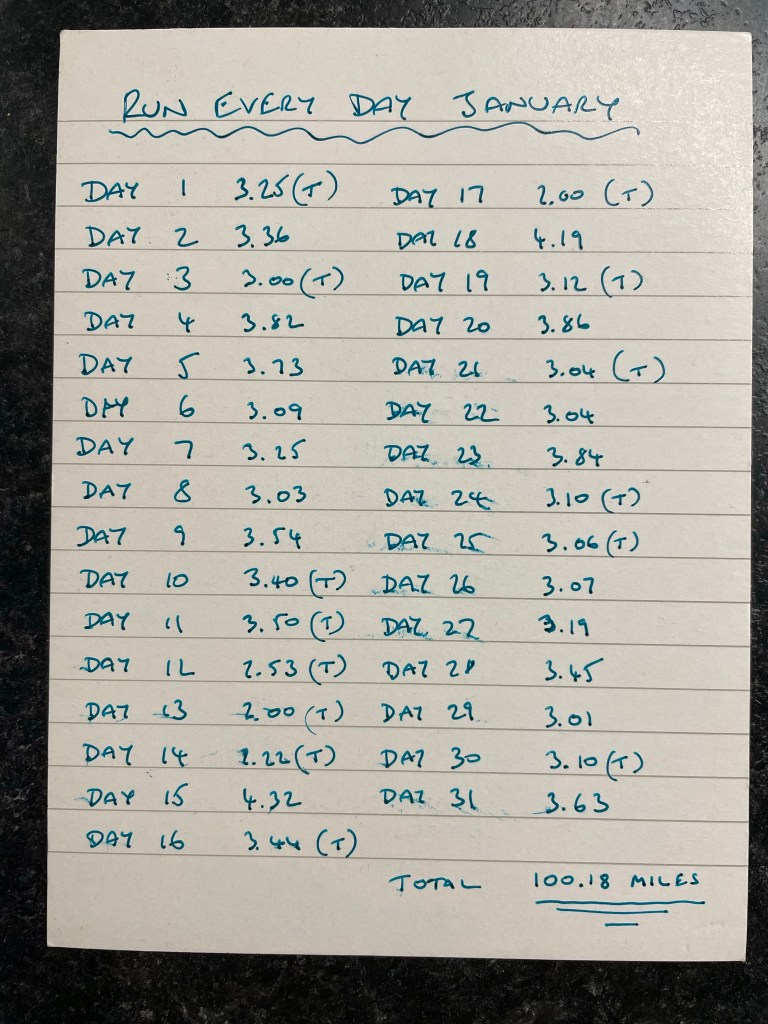 RUN EVERY DAY JANUARY
DAY 1 3.25 (T)
DAY 2 3.36
DAY 3 3.00 (T)
DAY 4 3.82
DAY 5 3.73
DAY 6 3.09
DAY 7 3.25
DAY 8 3.03
DAY 9 3.54
DAY 10 3.40 (T)
DAY 11 3.50 (T)
DAY 12 2.53 (T)
DAY 13 2.00 (T)
DAY 14 2.22 (T)
DAY 15 4.32
DAY 16 3.44 (T)
DAY 17 2.00 (T)
DAY 18 4.19
DAY 19 3.12 (T)
DAY 20 3.86
DAY 21 3.04 (T)
DAY 22 3.04
DAY 23 3.84
DAY 24 3.10 (T)
DAY 25 3.06 (T)
DAY 26 3.07
DAY 27 3.19
DAY 28 3.45
DAY 29 3.01
DAY 30 3.10 (T)
DAY 31 3.63
TOTAL 100.18 MILES